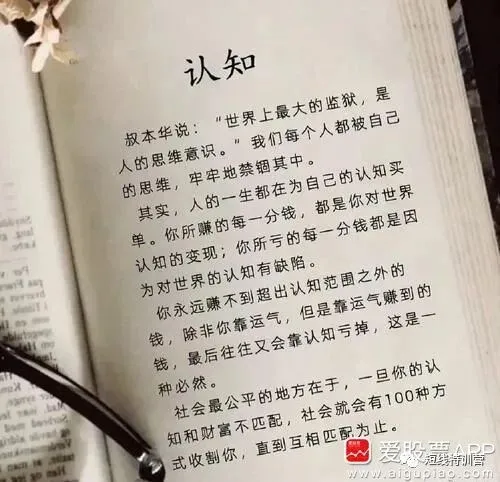 认知
叔本华说：“世界上最大的监狱，是
人的思维意识。”我们每个人都被自己
的思维，牢牢地禁锢其中。
其实，人的一生都在为自己的认知买
单。你所赚的每一分钱，都是你对世界
认知的变现；你所亏的每一分钱都是因
为对世界的认知有缺陷。
你永远赚不到超出认知范围之外的
钱，除非你靠运气，但是靠运气赚到的
钱，最后往往又会靠认知亏掉，这是一
种必然。
社会最公平的地方在于，一旦你的认
知和财富不匹配，社会就会有100种方
式收割你，直到互相匹配为止。
爱股票APP
短线特训营
www.aigupiao.com